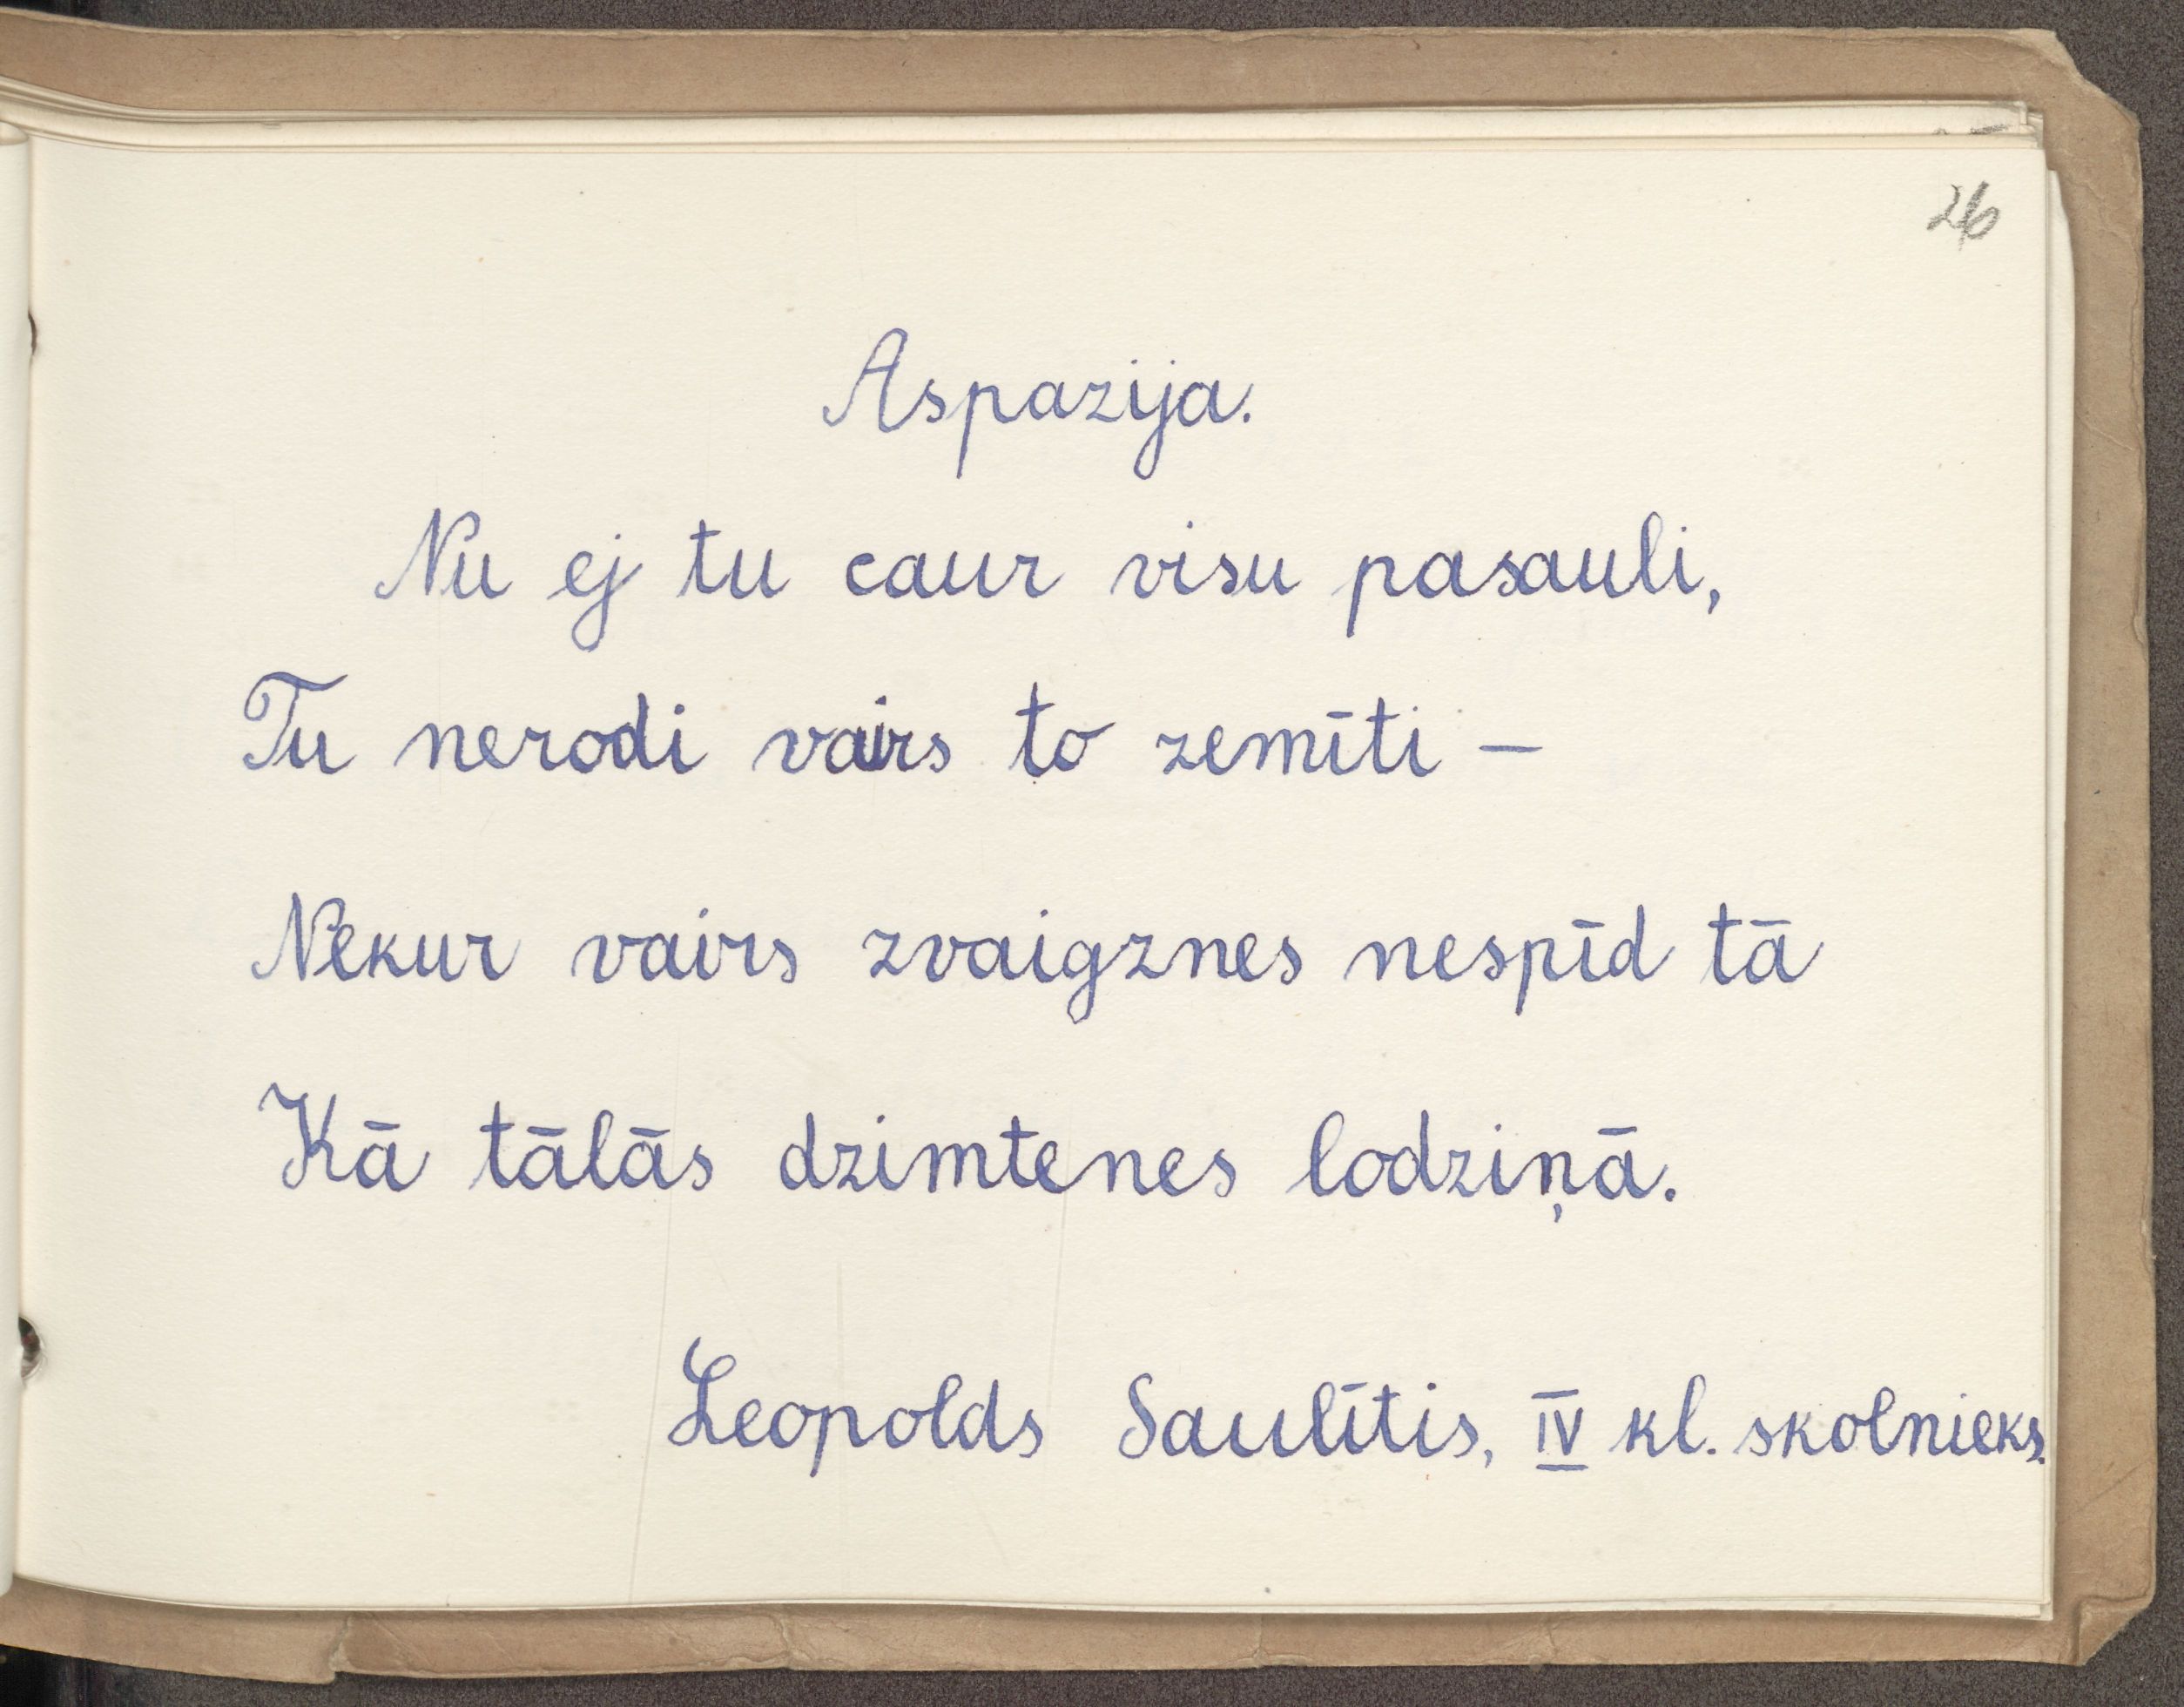 26
Aspazija.
Nu ej tu caur visu pasauli,
Tu nerodi vairs to zemīti –
Nekur vairs zvaigznes nespīd tā
Kā tālās dzimtenes lodziņā.
Leopolds Saulītis, IV kl. skolnieks.